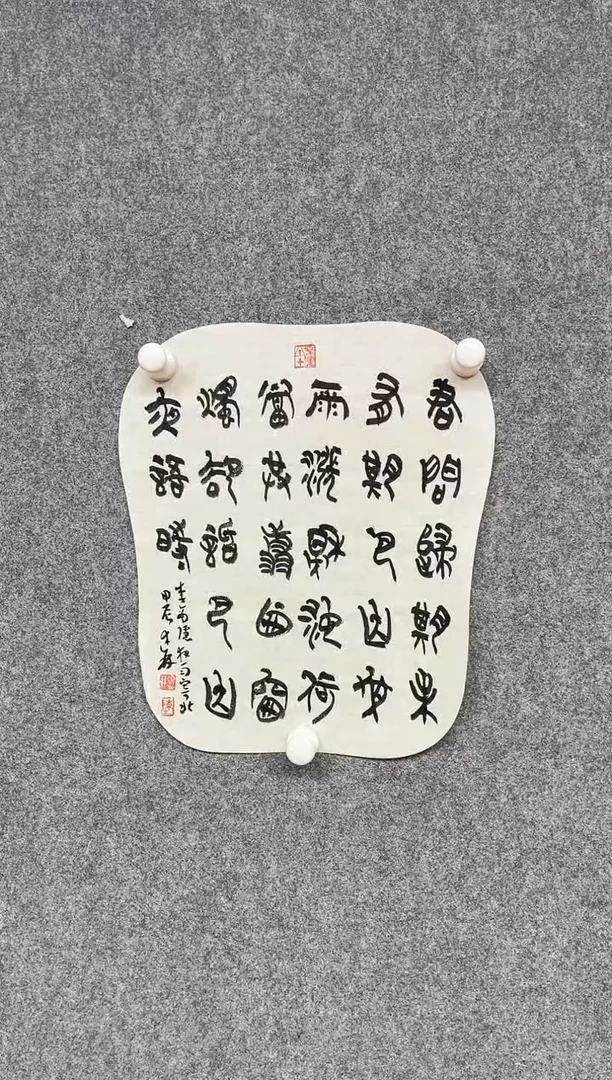 君問歸期未
有期巴山夜
雨漲秋池何
當共剪西窗
燭卻話巴山
夜語時
李商隱寄北
甲辰